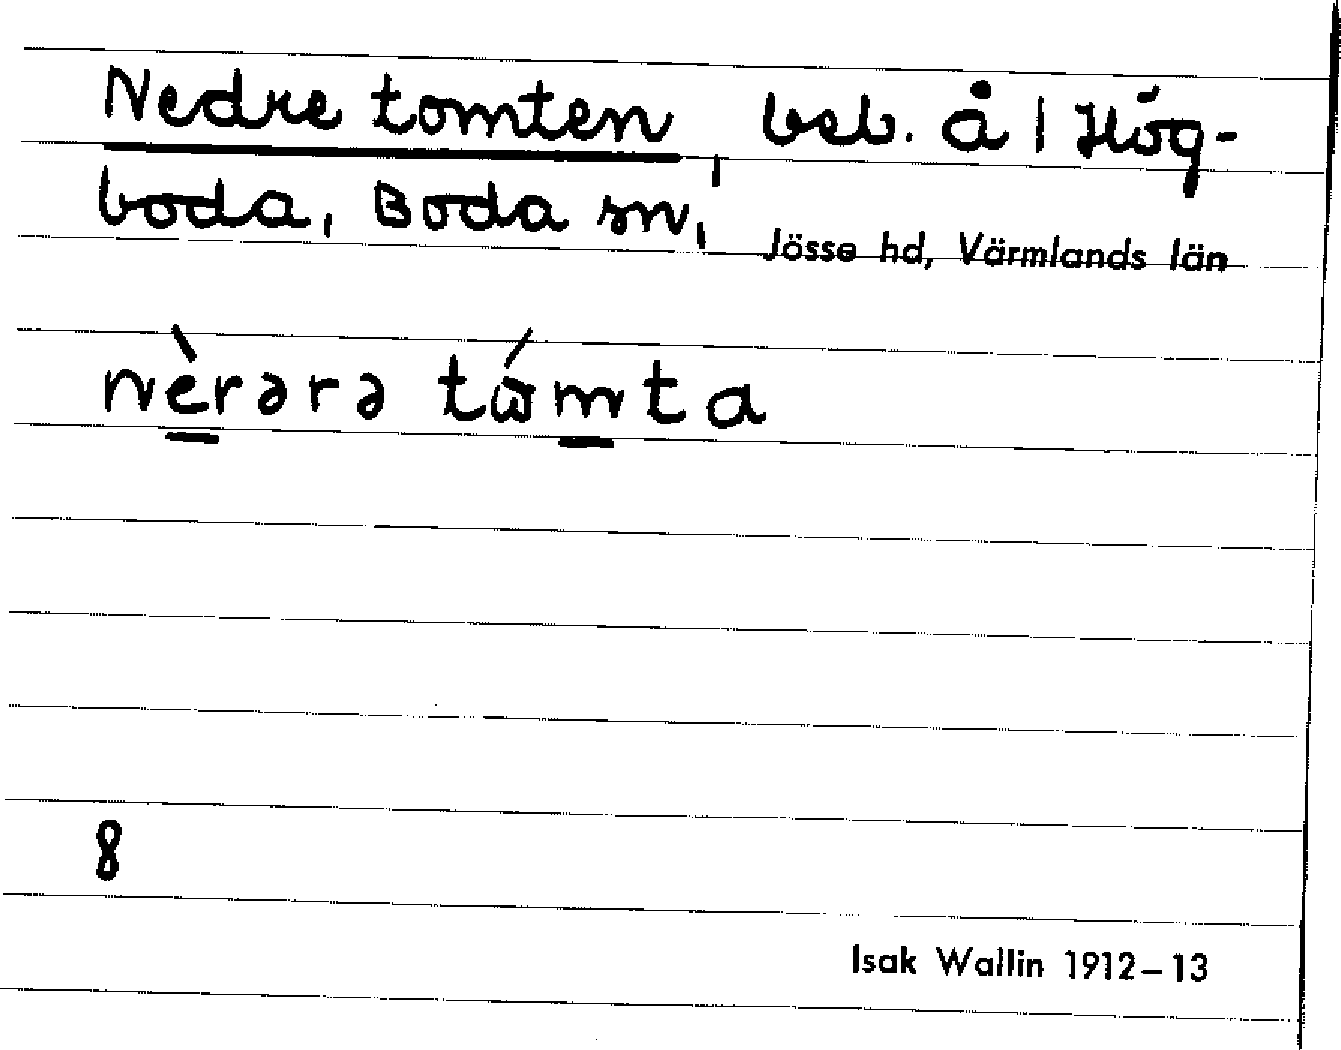 Nedre tomten, beb. å 1 Hög-
boda, Boda sn, Jösse hd, Värmlands län
nèrərə tɷ́mta
8
Isak Wallin 1912–13